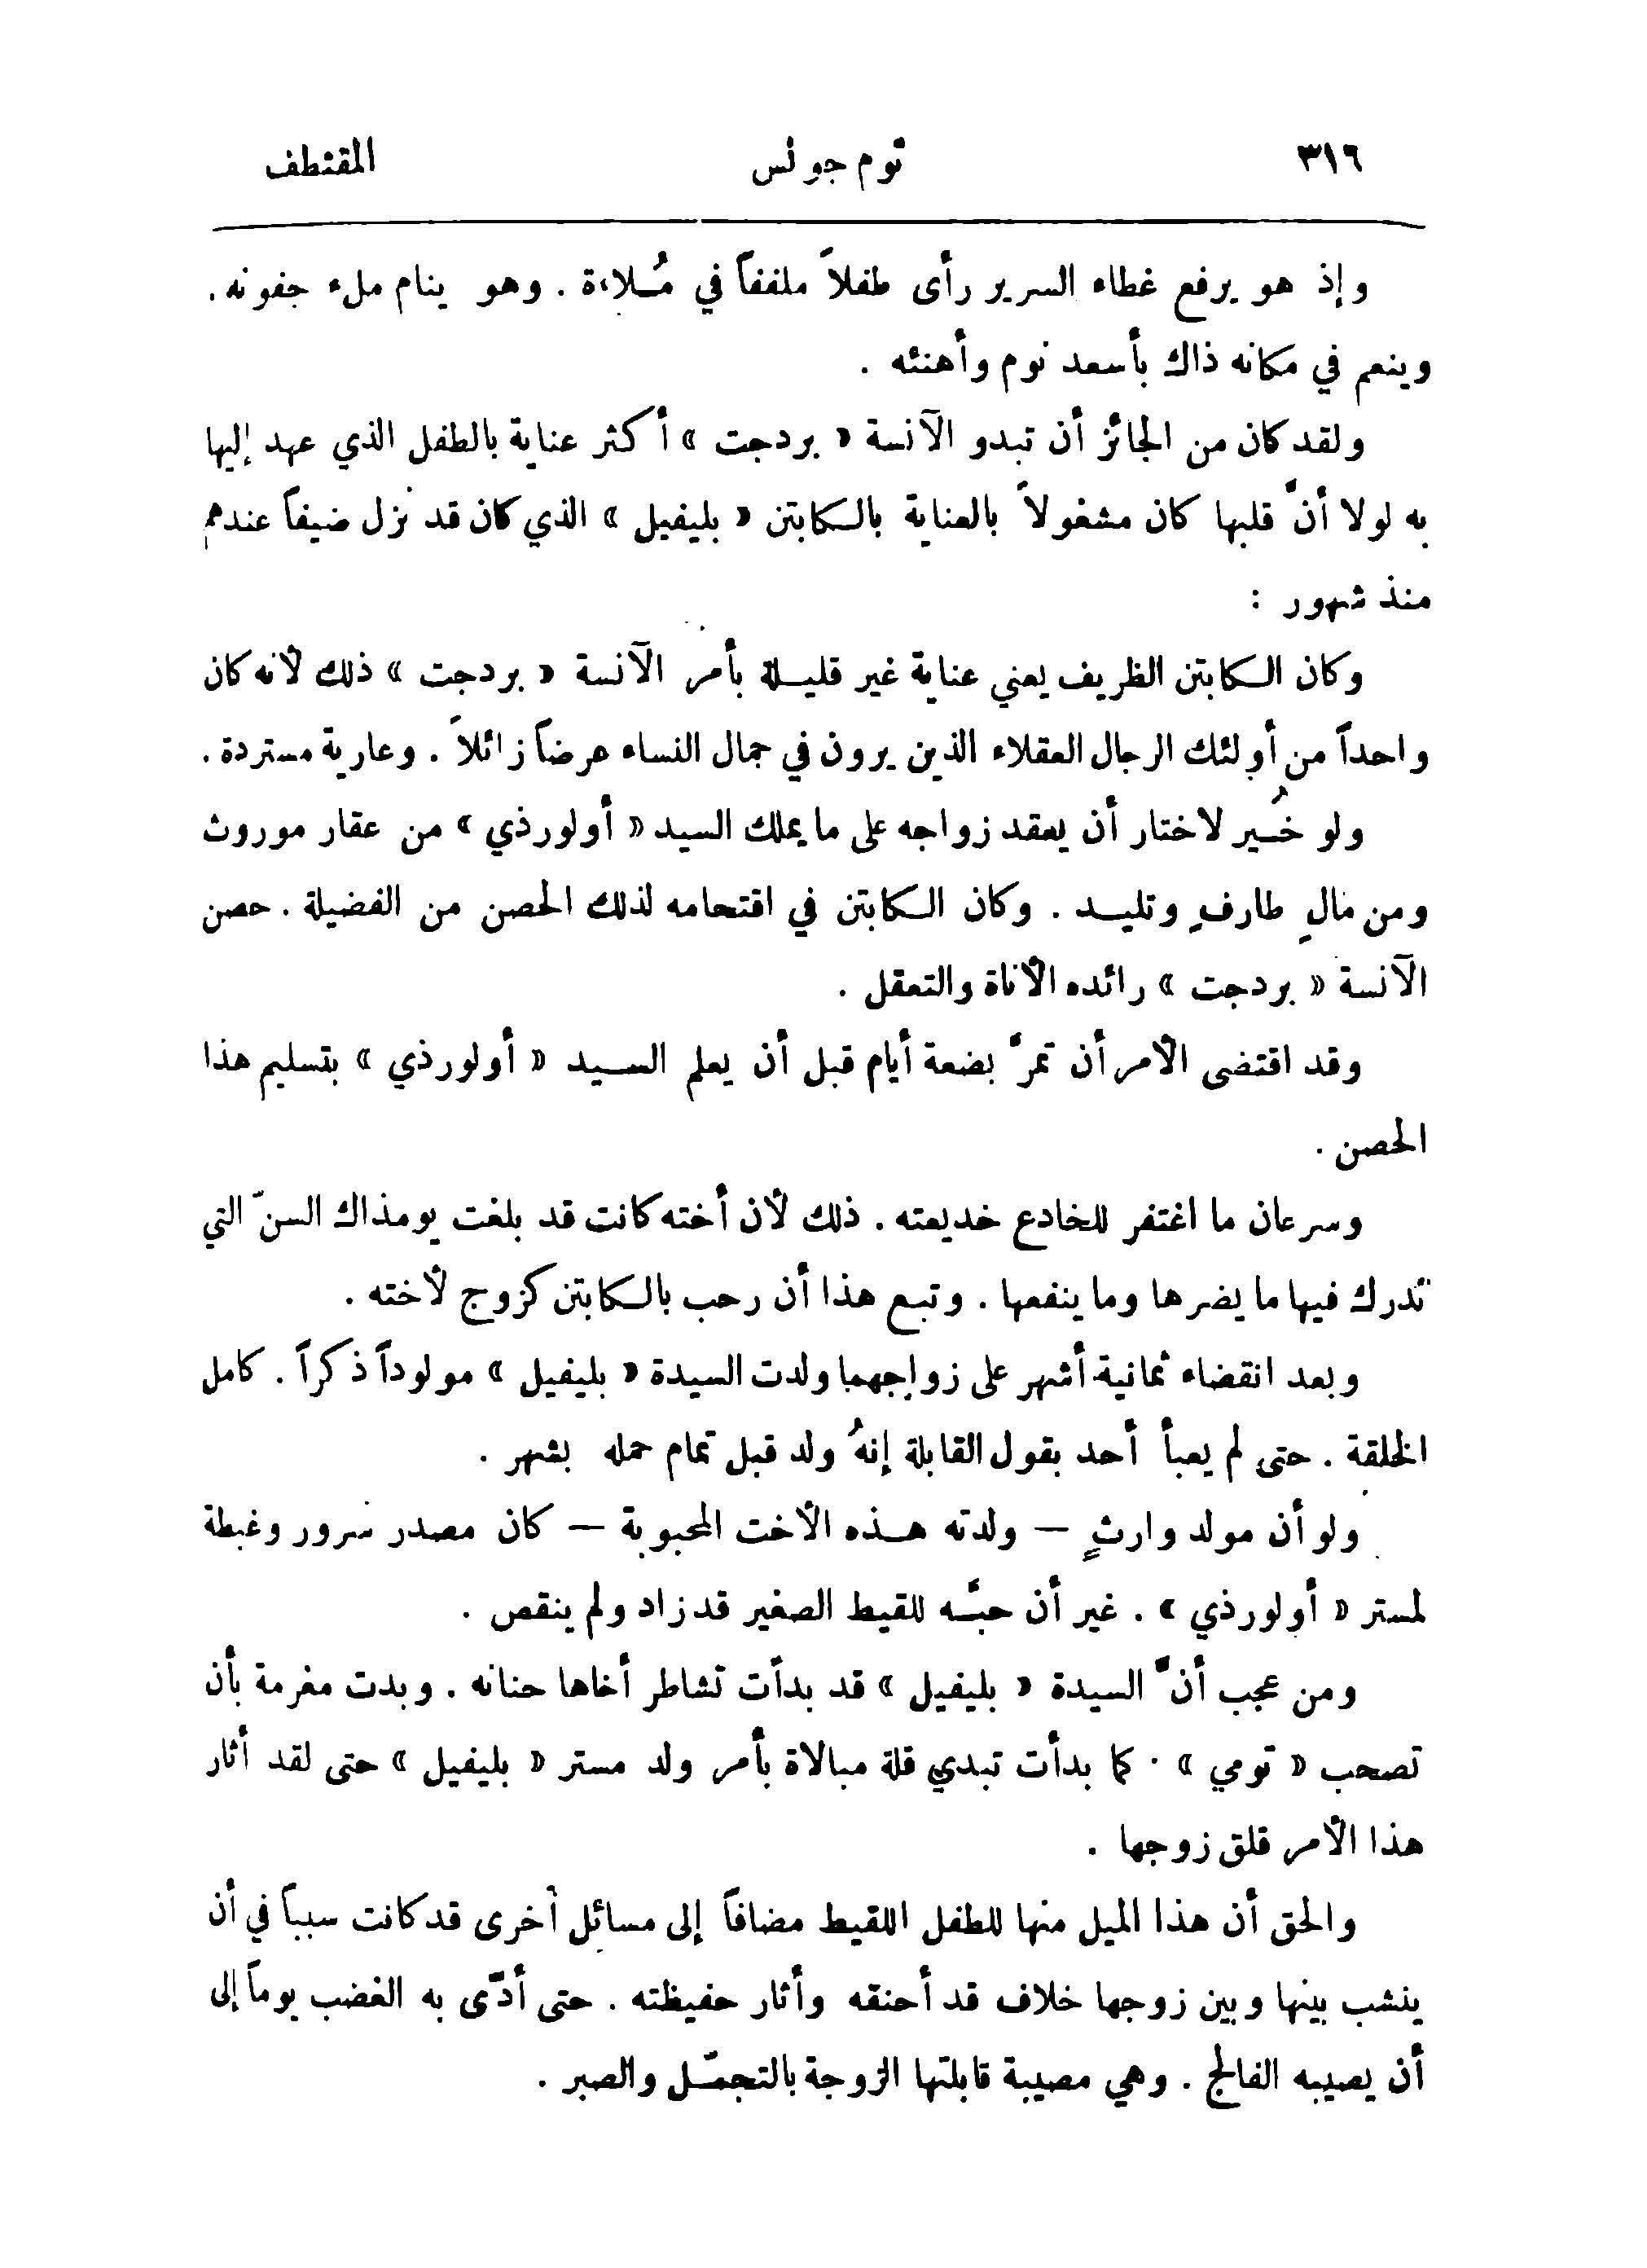 ٣١٦ توم جونس المقتطف
وإذ هو يرفع غطاء السرير رأى طفلاً ملففاً في مُلاءة . وهو ينام ملء جفونه .
وينعم في مكانه ذاك بأسعد نوم وأهنئه .
ولقد كان من الجائز أن تبدو الآنسة « بردجت » أكثر عناية بالطفل الذي عهد إليها
به لولا أنَّ قلبها كان مشغولاً بالعناية بالكابتن « بليفيل » الذي كان قد نزل ضيفاً عندهم
منذ شهور :
وكان الكابتن الظريف يعني عناية غير قليلة بأمر الآنسة « بردجت » ذلك لأنه كان
واحداً من أولئك الرجال العقلاء الذين يرون في جمال النساء عرضاً زائلاً . وعارية مستردة .
ولو خُيّر لاختار أن يعقد زواجه على ما يملك السيد « أولورذي » من عقار موروث
ومن مالٍ طارفٍ وتليد . وكان الكابتن في اقتحامه لذلك الحصن من الفضيلة . حصن
الآنسة « بردجت » رائده الأناة والتعقل .
وقد اقتضى الأمر أن تمرَّ بضعة أيام قبل أن يعلم السيد « أولورذي » بتسليم هذا
الحصن .
وسرعان ما اغتفر للخادع خديعته . ذلك لأن أخته كانت قد بلغت يومذاك السنّ التي
تدرك فيها ما يضرها وما ينفعها . وتبع هذا أن رحب بالكابتن كزوج لأخته .
وبعد انقضاء ثمانية أشهر على زواجهما ولدت السيدة « بليفيل » مولوداً ذكراً . كامل
الخلقة . حتى لم يعبأ أحد بقول القابلة إنهُ ولد قبل تمام حمله بشهر .
ولو أن مولد وارثٍ — ولدته هذه الأخت المحبوبة — كان مصدر سرور وغبطة
لمستر « أولورذي » . غير أن حبَّه للقيط الصغير قد زاد ولم ينقص .
ومن عجب أنَّ السيدة « بليفيل » قد بدأت تشاطر أخاها حنانه . وبدت مغرمة بأن
تصحب « تومي » . كما بدأت تبدي قلة مبالاة بأمر ولد مستر « بليفيل » حتى لقد أثار
هذا الأمر قلق زوجها .
والحق أن هذا الميل منها للطفل اللقيط مضافاً إلى مسائل أخرى قد كانت سبباً في أن
ينشب بينها وبين زوجها خلاف قد أحنقه وأثار حفيظته . حتى أدّى به الغضب يوماً إلى
أن يصيبه الفالج . وهي مصيبة قابلتها الزوجة بالتجمّل والصبر .